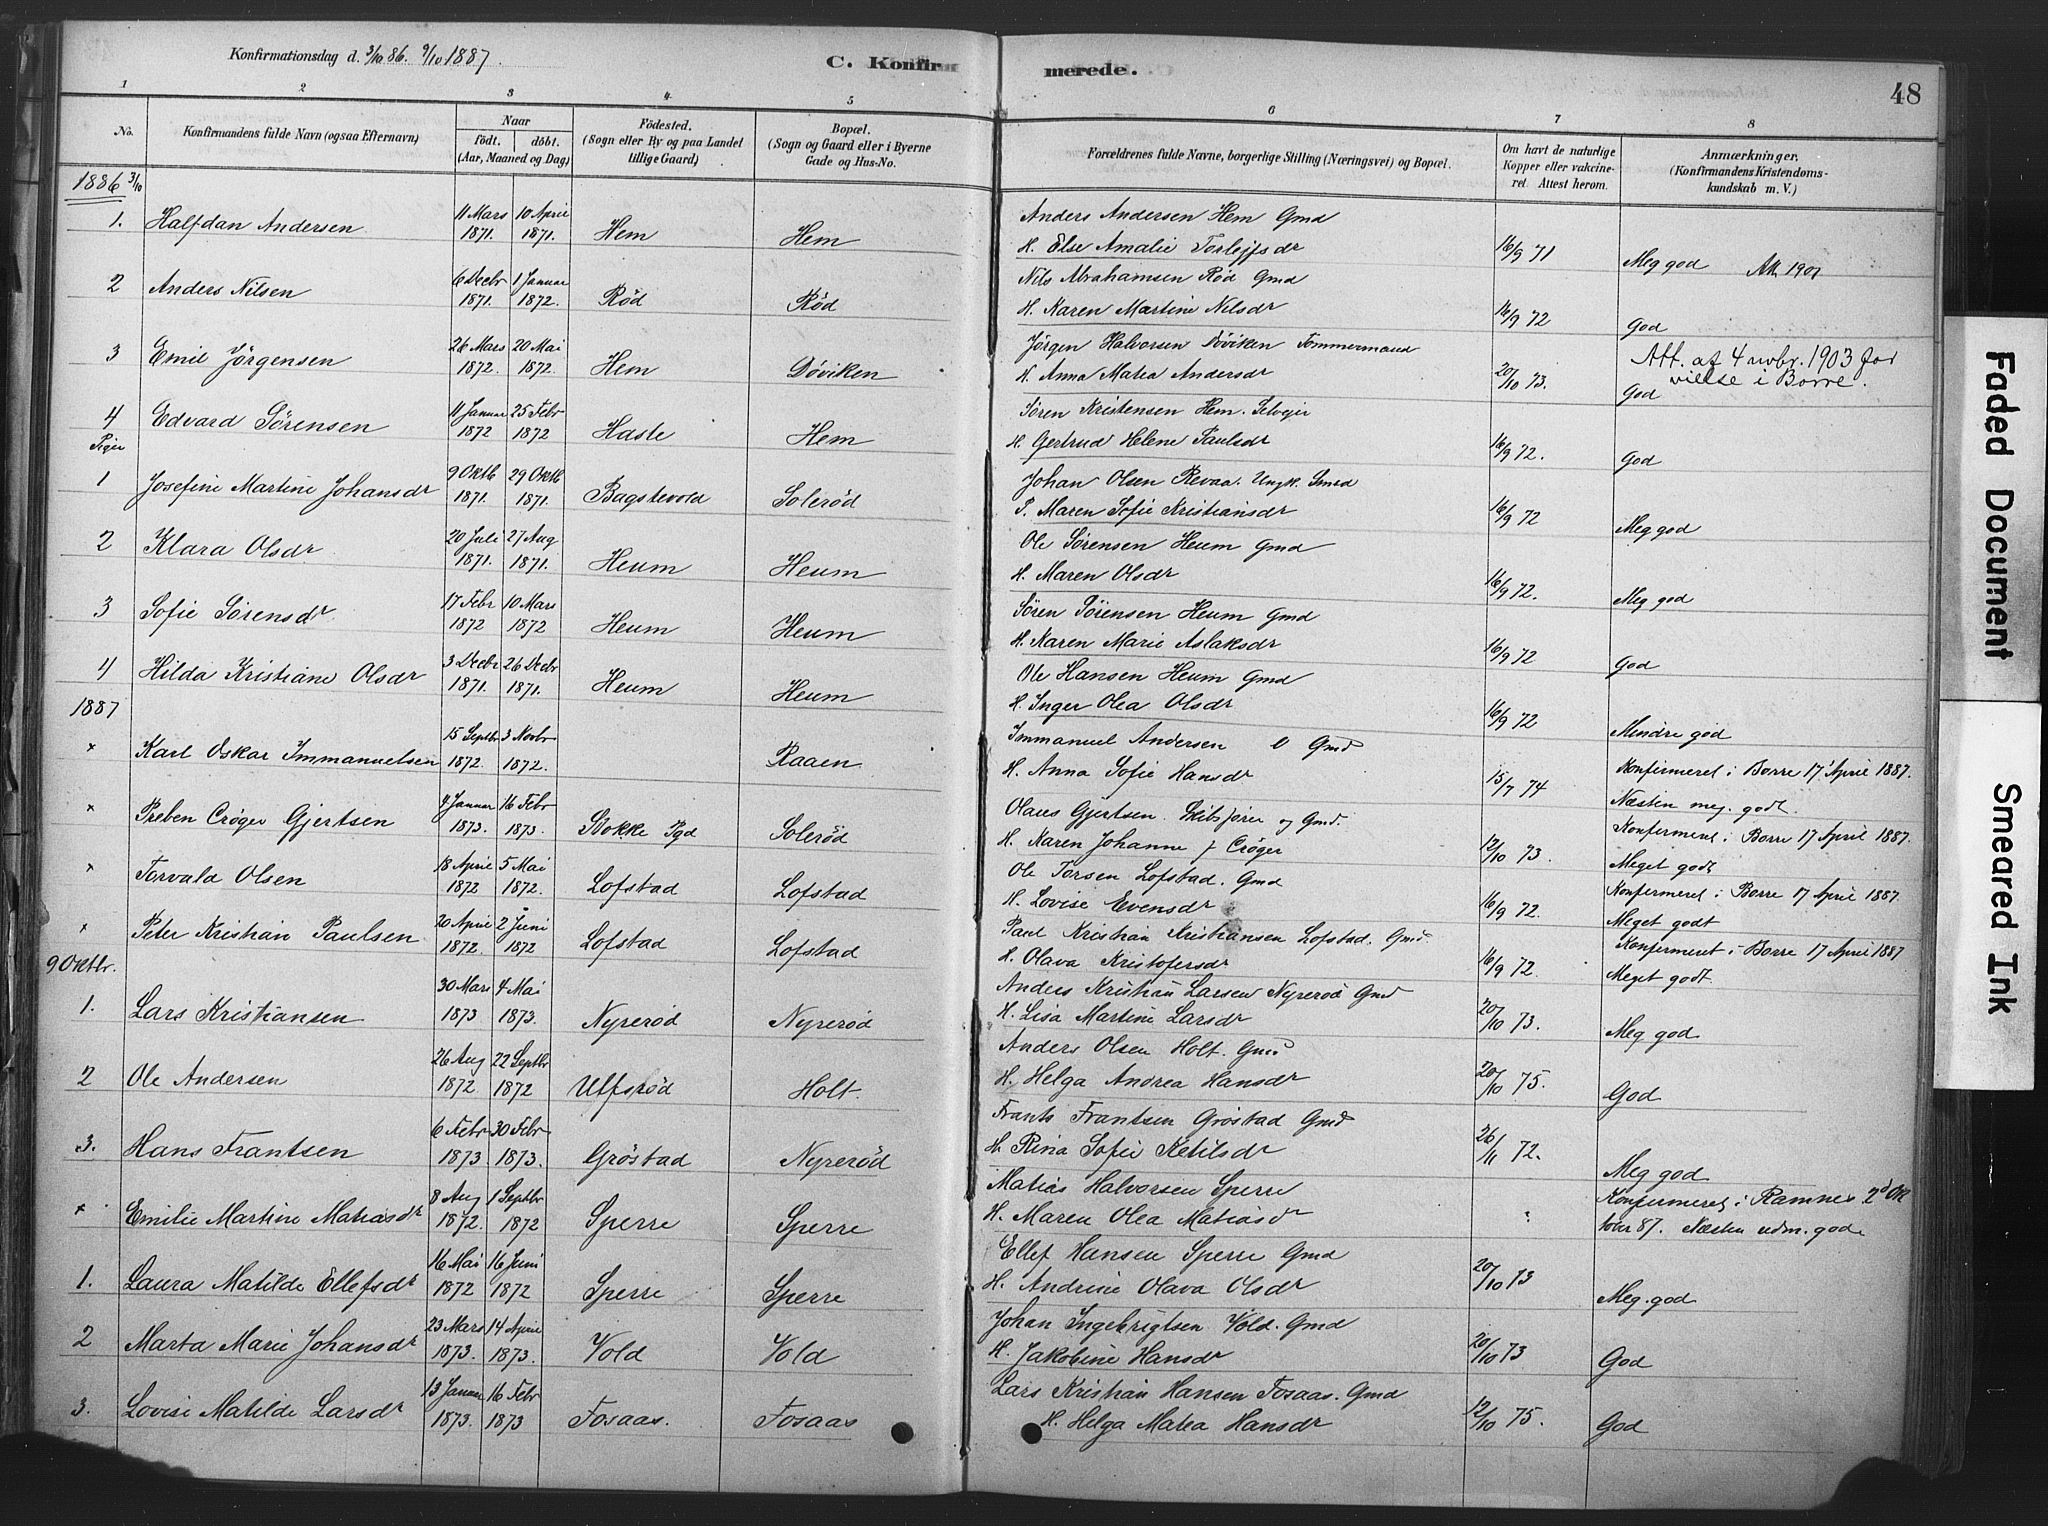 Konfirmationsdag d. 3/10 86. 9/10 1887.
C. Konfirmerede.
48
1 2 3 4 5 6 7 8
No.
Konfirmandens fulde Navn (ogsaa Efternavn)
Naar
födt. döbt.
(Aar, Maaned og Dag)
Födested.
(Sogn eller By og paa Landet
tillige Gaard)
Bopæl.
(Sogn og Gaard eller i Byerne
Gade og Hus-No.
Forældrenes fulde Navne, borgerlige Stilling (Næringsvei) og Bopæl.
Om havt de naturlige
Kopper eller vakcine-
ret. Attest herom.
Anmærkninger.
(Konfirmandens Kristendoms-
kundskab m. V.)
1886 3/10
1. Halfdan Andersen 11 Mars 1871. 10 April 1871. Hem Hem Anders Andersen Hem Gmd
H. Else Amalie Torleifsdr 16/9 71 Meg god Att 1907
2 Anders Nilsen 6 Decbr 1871. 1 Januar 1872. Rød Rød Nils Abrahamsen Rød Gmd
H. Karen Martine Nilsdr 16/9 72 God
3 Emil Jörgensen 26 Mars 1872. 20 Mai 1872. Hem Döviken Jörgen Halvorsen Döviken Tømmermand
H. Anna Matea Andersdr 20/10 73. God Att. af 4 novbr. 1903 for
vielse i Borre.
4 Edvard Sörensen 11 Januar 1872 25 Febr 1872 Haste Hem Sören Kristensen Hem. Selveier
H. Gertrud Helene Paulsdr 16/9 72. God
Piger
1 Josefine Martine Johansdr 9 Oktb 1871. 29 Oktb 1871. Bagstevold Solerød Johan Olsen Revaa. Ungk. Smed
P. Maren Sofie Kristiansdr 16/9 72 Meg god
2 Klara Olsdr 20 Juli 1871. 27 Aug 1871. Heum Heum Ole Sörensen Heum Gmd
H. Maren Olsdr 16/9 72. Meg god
3 Sofie Sörensdr 17 Febr 1872 10 Mars 1872 Heum Heum Sören Sörensen Heum Gmd
H. Karen Marie Aslaksdr 16/9 72 God
4 Hilda Kristiane Olsdr 3 Decbr 1871. 26 Decbr 1871. Heum Heum Ole Hansen Heum Gmd
H. Inger Olea Olsdr 16/9 72 Mindre god
1887
x Karl Oskar Immanuelsen 15 Septbr 1872. 3 Novbr 1872. Raaen Immanuel Andersen Gmd
H. Anna Sofie Hansdr 15/7 74 Konfirmeret i Borre 17 April 1887.
Næsten meg. godt.
x Preben Cröger Gjertsen 4 Januar 1873. 16 Febr 1873. Stokke Pgd Solerød Olaus Gjertsen. Skibsfører og Gmd.
H. Karen Johanne f Cröger 12/10 73. Konfirmeret i Borre 17 April 1887.
Meget godt
x Torvald Olsen 18 April 1872 5 Mai 1872. Lofstad Lofstad Ole Torsen Lofstad. Gmd
H. Lovise Evensdr 16/9 72. Konfirmeret i Borre 17 April 1887.
Meget godt
x Peter Kristian Paulsen 20 April 1872. 2 Juni 1872 Lofstad Lofstad Paul Kristian Kristiansen Lofstad. Gmd.
H. Olava Kristofersdr 16/9 72. Konfirmeret i Borre 17 April 1887
Meget godt.
9 Oktbr.
1. Lars Kristiansen 30 Mars 1873 4 Mai 1873. Nyrerød Nyrerød Anders Kristian Larsen Nyrerød Gmd
H. Lisa Martine Larsdr 20/10 73. Meg god
2 Ole Andersen 26 Aug 1872. 22 Septbr 1872 Ulfsrød Holt. Anders Olsen Holt. Gmd
H. Helga Andrea Hansdr 20/10 75. God
3. Hans Frantsen 6 Febr 1873. 30 Febr 1873. Gröstad Nyrerød Frants Frantsen Gröstad Gmd
H. Rina Sofie Ketilsdr 26/11 72. Meg god
x Emilie Martine Matiasdr 8 Aug 1872. 1 Septbr 1872 Sperre Sperre Matias Halvorsen Sperre
H. Maren Olea Matiasdr Konfirmeret i Ramnes 2d Ok
tobr 87. Næsten udm. god
1. Laura Matilde Ellefsdr 16 Mai 1872 16 Juni 1872 Sperre Sperre Ellef Hansen Sperre Gmd
H. Andrine Olava Olsdr 20/10 73 Meg. god
2 Marta Marie Johansdr 23 Mars 1873. 14 April 1873. Vold Vold Johan Ingebrigtsen Vold. Gmd
H. Jakobine Hansdr 20/10 73 God
3. Lovise Matilde Larsdr 13 Januar 1873. 16 Febr 1873 Fosaas. Fosaas Lars Kristian Hansen Fosaas. Gmd
H. Helga Matea Hansdr 12/10 75. God
Faded Document
Smeared Ink